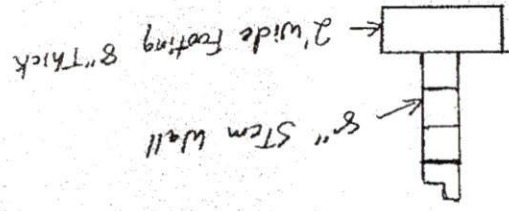 8" STem Wall
2' wide Footing 8" Thick